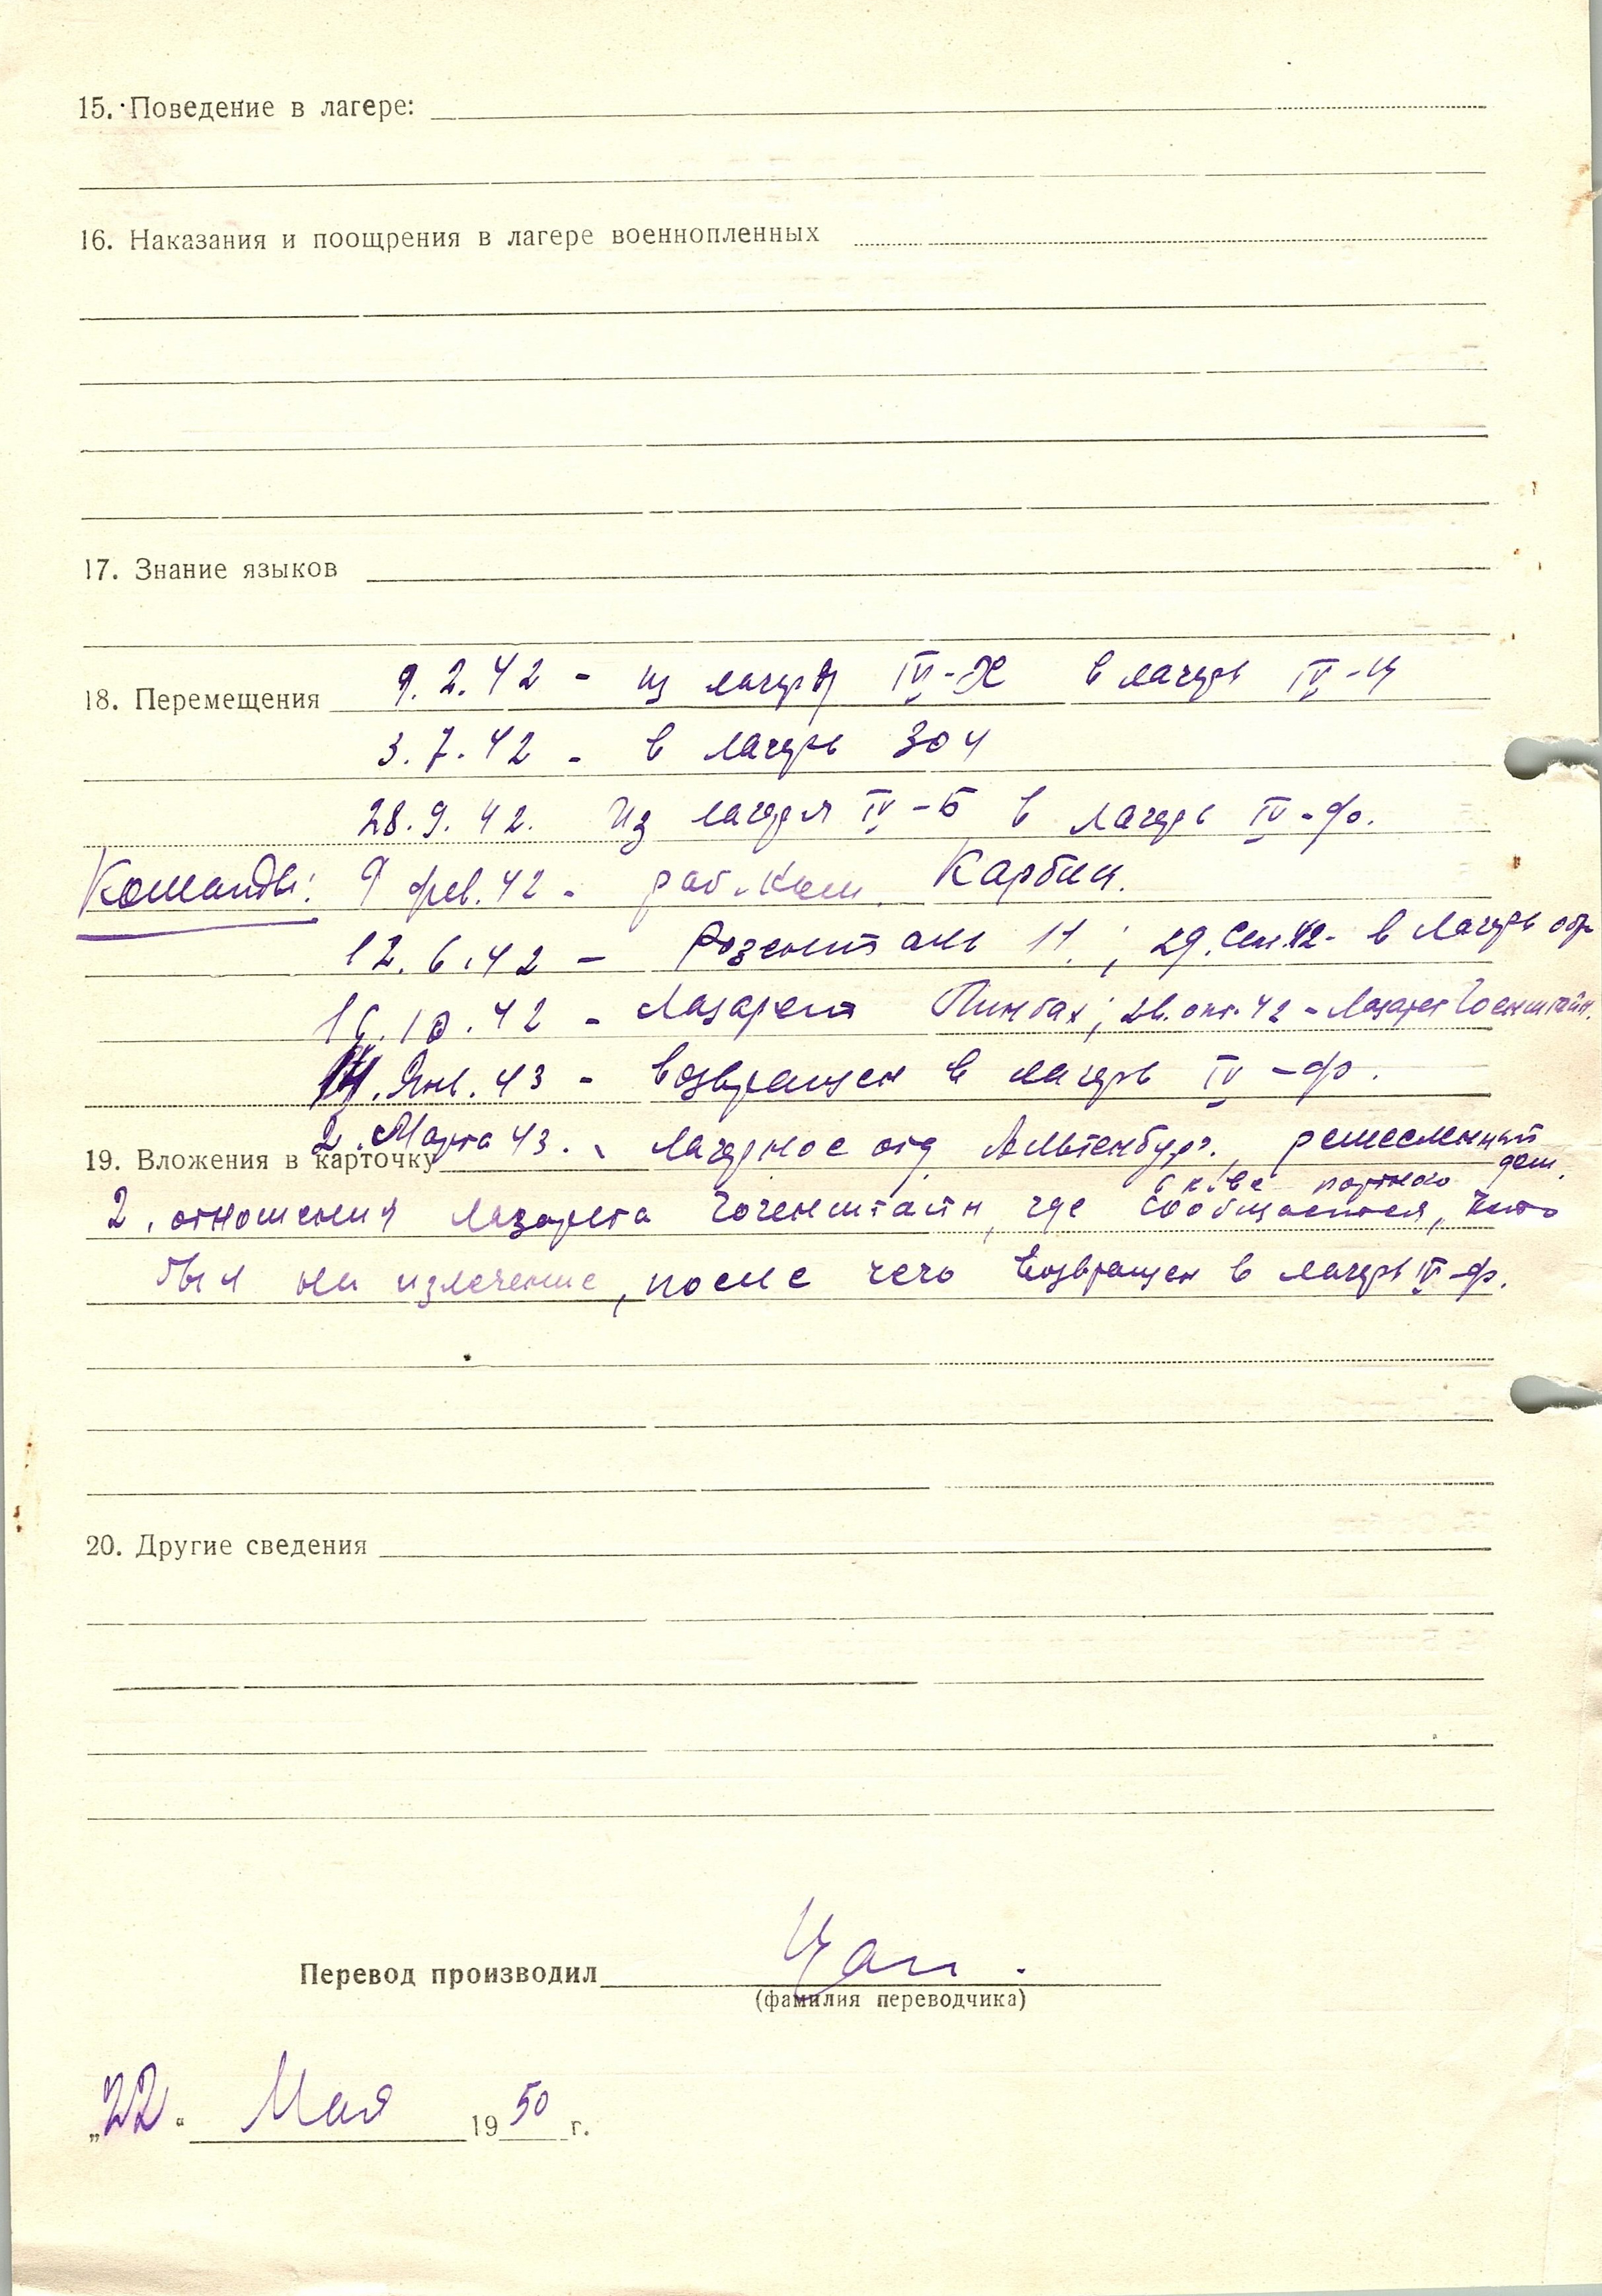 15. Поведение в лагере:
16. Наказания и поощрения в лагере военнопленных
17. Знание языков
18. Перемещения 9.2.42 - из лагеря IV-Х в лагерь IV-Ц
3.7.42 - в лагерь 304
28.9.42. Из лагеря IV-Б в лагерь IV-ф.
Команды: 9 фев. 42 - раб. ком. Карбин.
12.6.42 - Розенталь 11.; 29. Сен. 42 - в лагерь обр
16.10.42 - Лазарет ; окт. 42 - Лазарет Гоенштайн.
Янв. 43 - возвращен в лагерь IV-ф.
2. Марта 43. - Лагерное отд. Альтенбург., ремесленный дом.
19. Вложения в карточку
в портного
2. отношения лазарета Гогенштайн, где сообщается, что
был на излечение, после чего возвращен в лагерь IV-ф.
20. Другие сведения
Перевод производил
(фамилия переводчика)
„22“ Мая 1950 г.